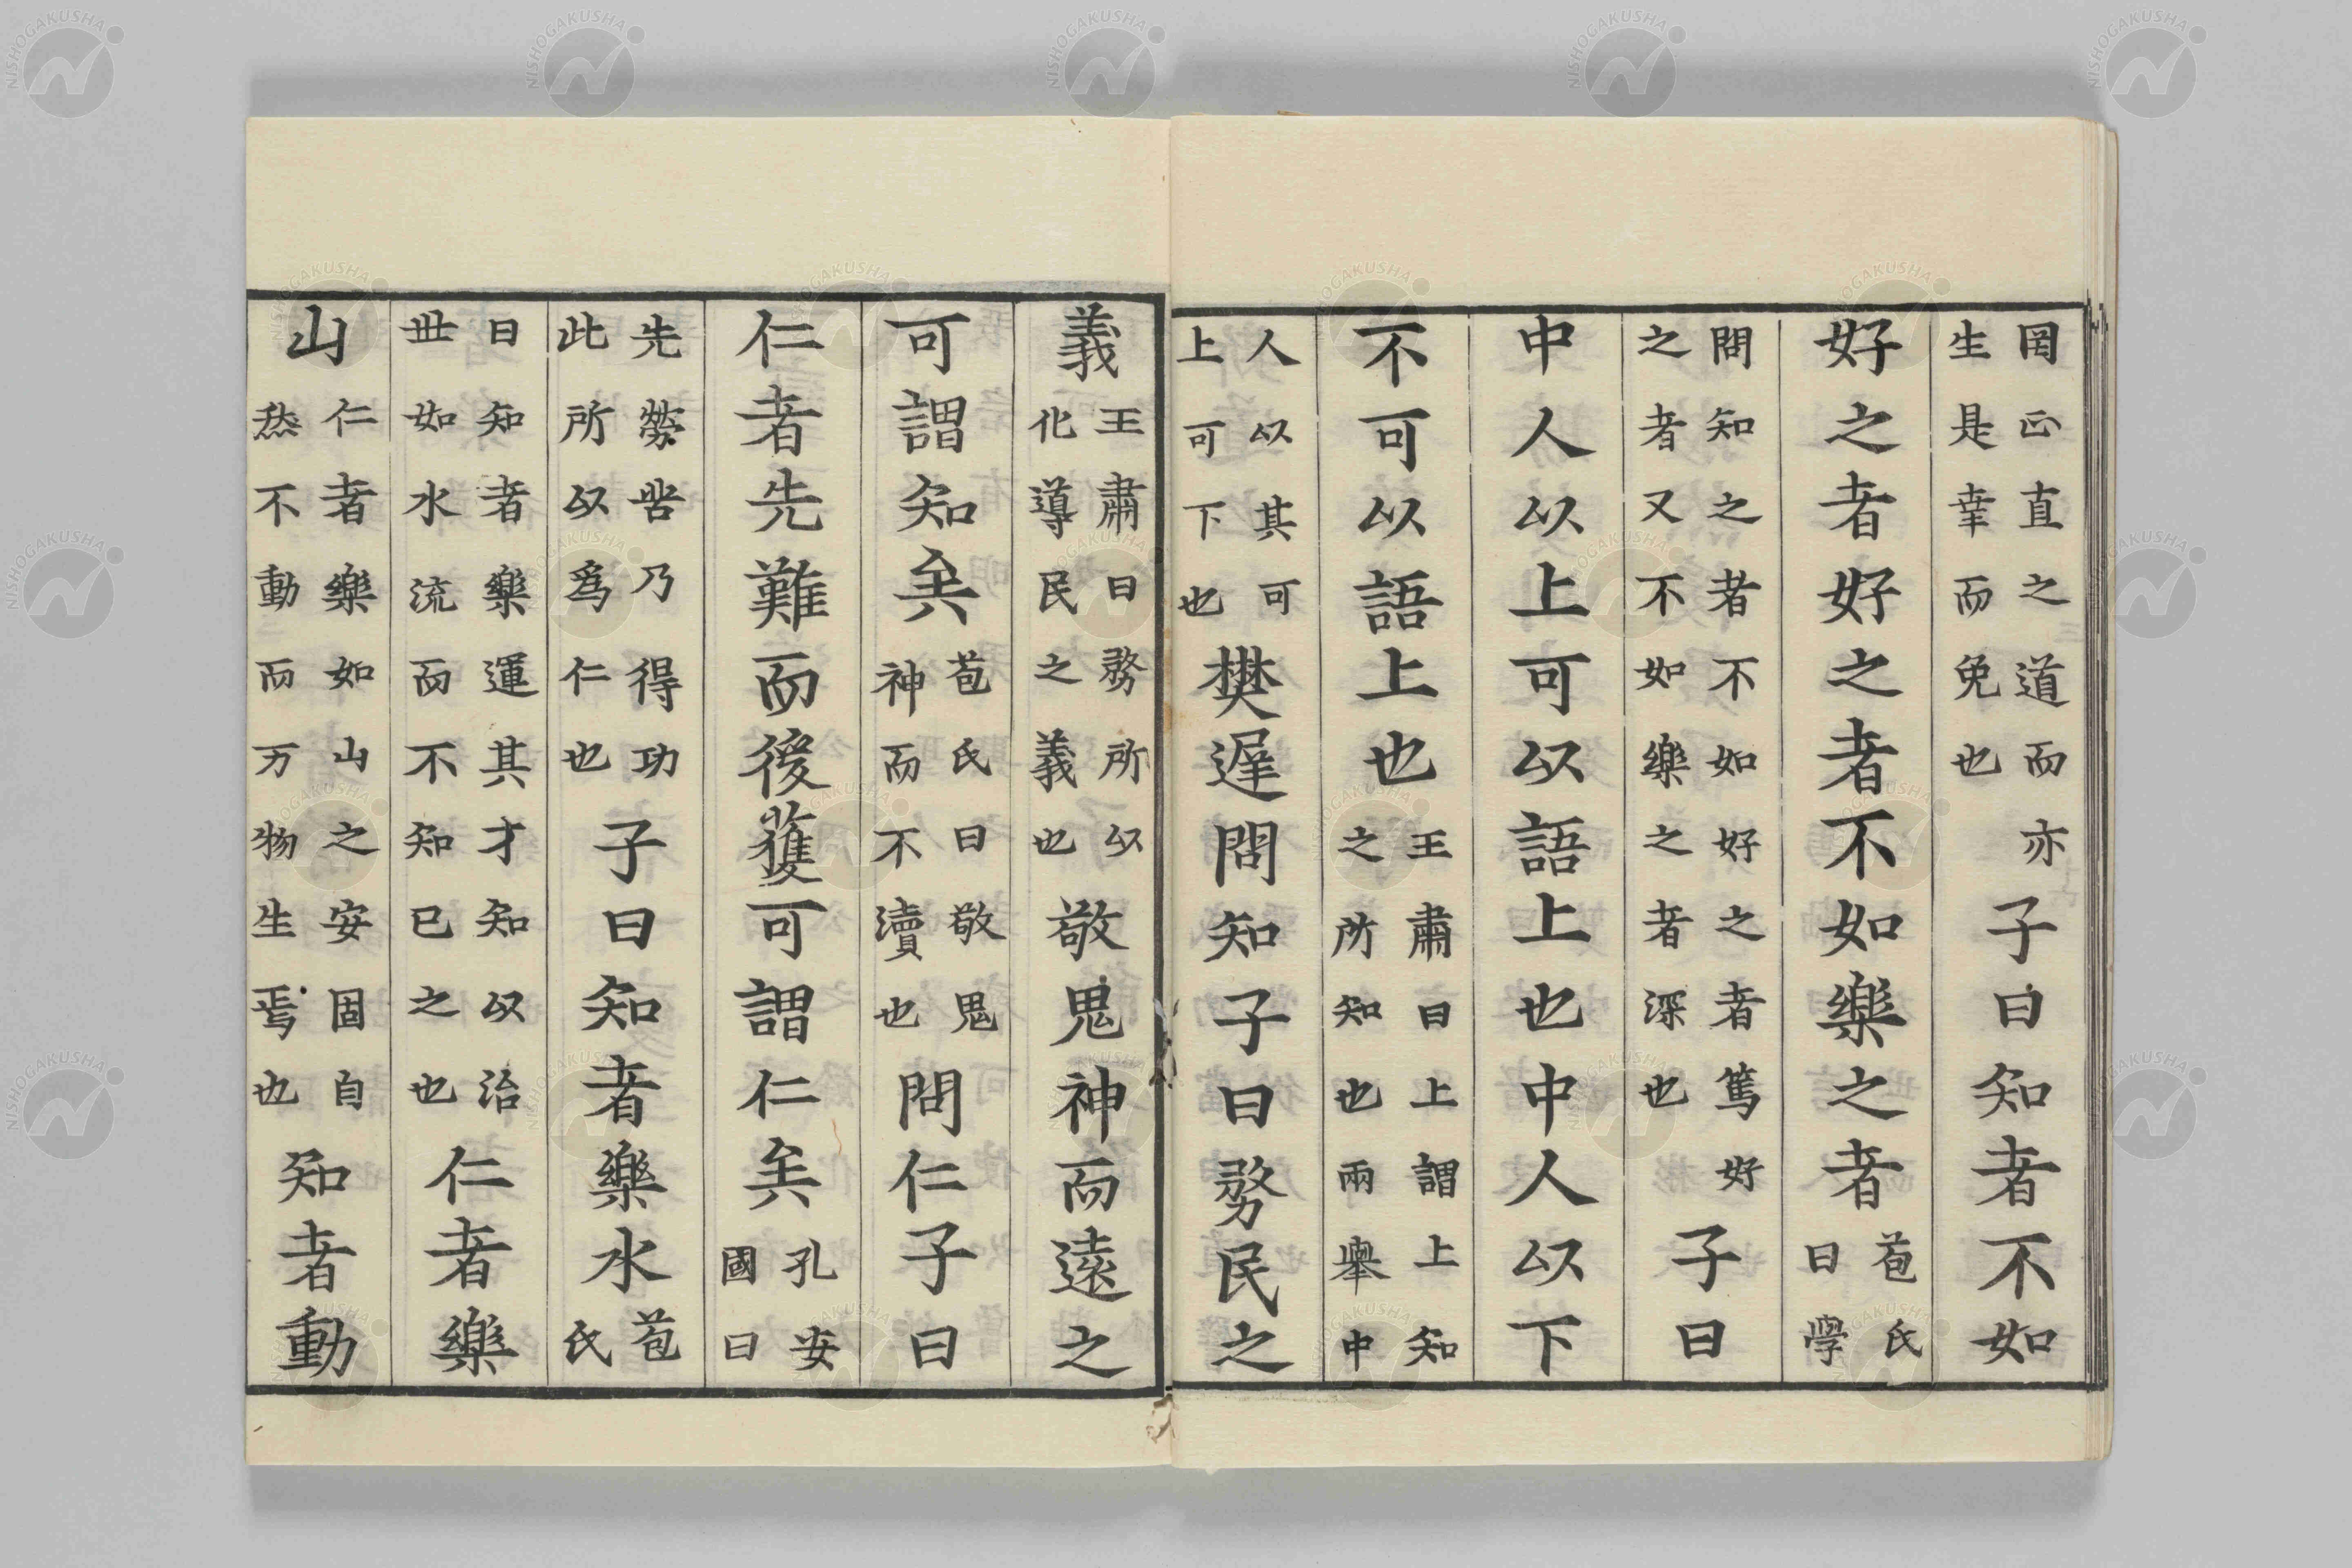 罔正直之道而亦生是幸而免也子曰知者不如
好之者好之者不如樂之者苞氏曰學
問知之者不如好之者篤好之者又不如樂之者深也子曰
中人以上可以語上也中人以下
不可以語上也王肅曰上謂上知之所知也兩舉中
人以其可上可下也樊遲問知子曰務民之
義王肅曰務所以化導民之義也敬鬼神而遠之
可謂知矣苞氏曰敬鬼神而不瀆也問仁子曰
仁者先難而後獲可謂仁矣孔安國曰
先勞苦乃得功此所以爲仁也子曰知者樂水苞氏
曰知者樂運其才知以治世如水流而不知已之也仁者樂
山仁者樂如山之安固自然不動而万物生焉也知者動